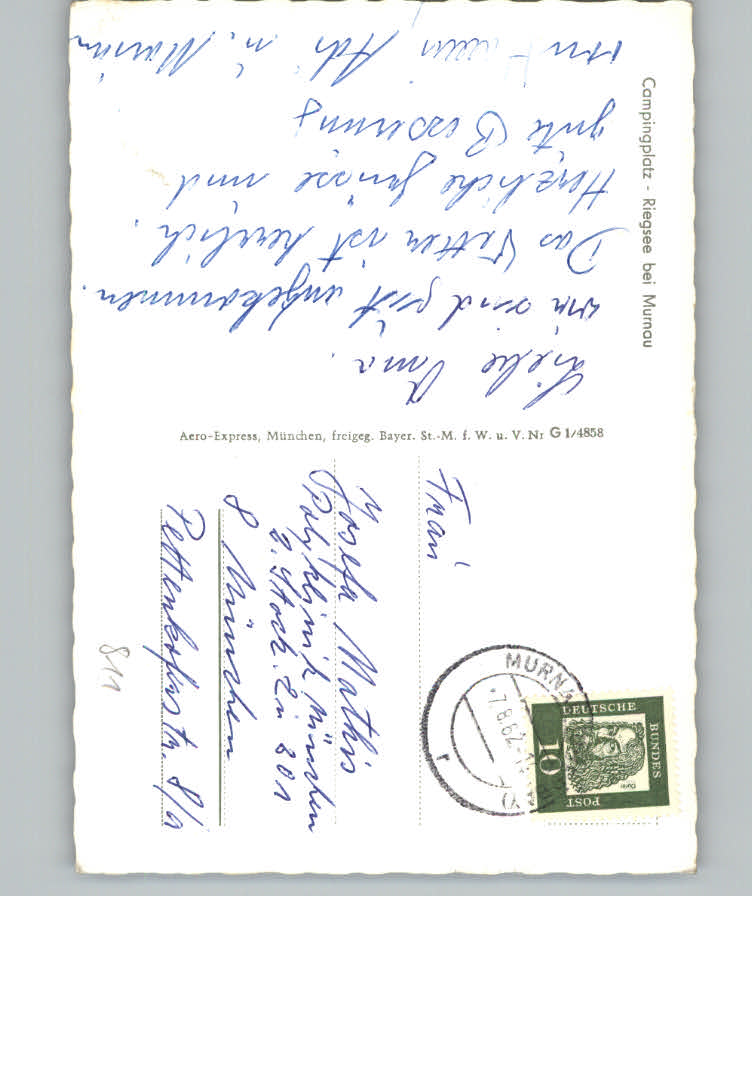 Campingplatz - Riegsee bei Murnau
Liebe Oma.
wir sind gut angekommen.
Das Wetter ist herrlich.
Herzliche Grüsse und
gute Besserung
von Adi u. Maria
Aero-Express, München, freigeg. Bayer. St.-M. f. W. u. V. Nr G 1/4858
Frau
Josefa Mathis
Poliklinik München
2. Stock. Zi 201
8 München
Pettenkoferstr. 8/a
811
MURNAU
7.8.62
DEUTSCHE
BUNDES
POST
10
Dürer